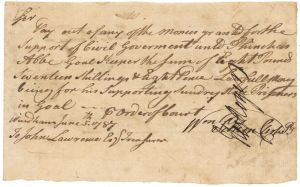 Sir
Pay out of any of the monies granted for the
Support of Civil Goverment unto Phinehas
Abbe Goal Keeper the sum of Eight Pounds
Seventeen Shillings & Eight Pence Lawfull Money
being for his Supporting Sundry Prisoners
in Goal - Pr Order of Court
Windham June 5th 1787
To John Lawrence Esqr Treasurer